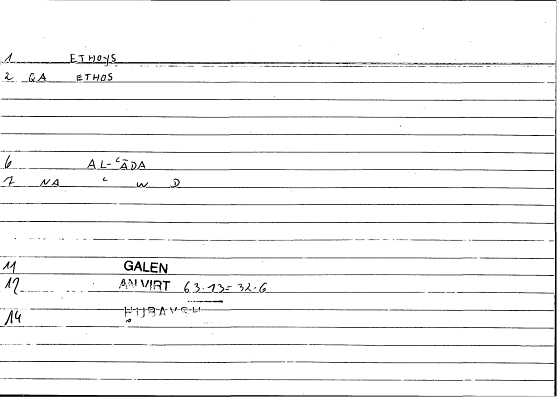 1 ETHOYS
2 QA ETHOS
6 AL-ʿĀDA
7 NA ʿ W D
11 GALEN
12 AN VIRT 63.13=32.6
14